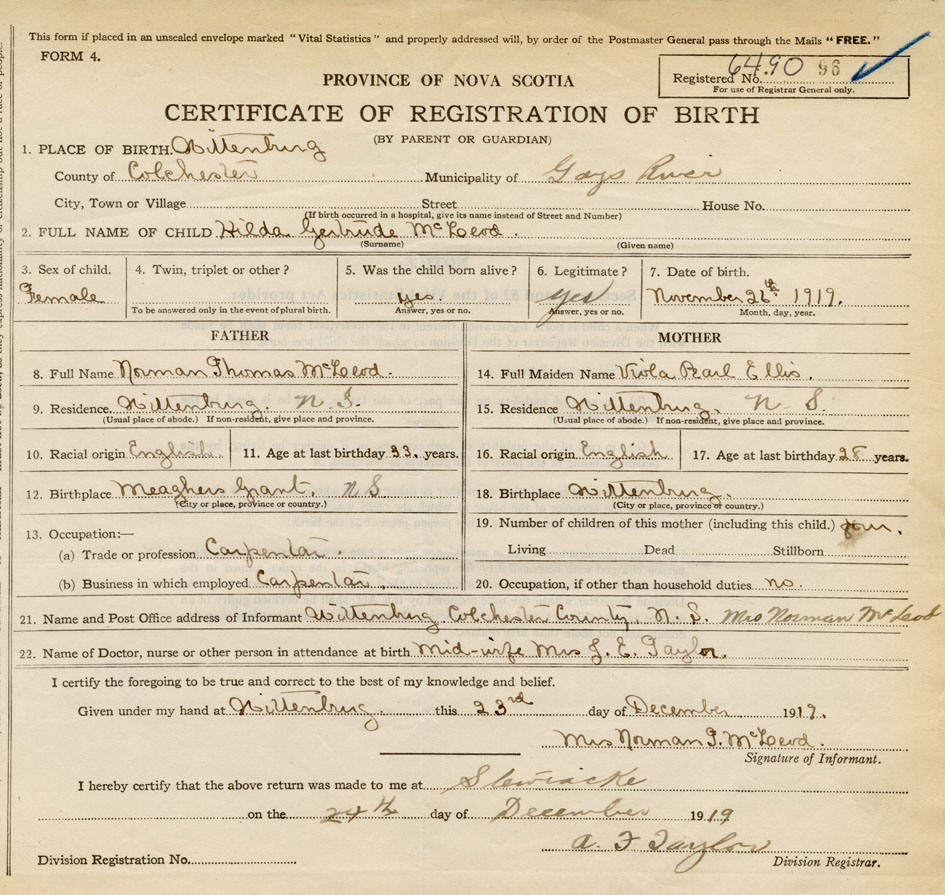 This form if placed in an unsealed envelope marked "Vital Statistics" and properly addressed will, by order of the Postmaster General pass through the Mails "FREE."
FORM 4.
Registered No. 6490 96
For use of Registrar General only.
PROVINCE OF NOVA SCOTIA
CERTIFICATE OF REGISTRATION OF BIRTH
(BY PARENT OR GUARDIAN)
1. PLACE OF BIRTH. Wittenburg
County of Colchester Municipality of Gays River
City, Town or Village Street House No.
(If birth occurred in a hospital, give its name instead of Street and Number)
2. FULL NAME OF CHILD Hilda Gertrude McLeod.
(Surname) (Given name)
3. Sex of child. 4. Twin, triplet or other? 5. Was the child born alive? 6. Legitimate? 7. Date of birth.
Female yes. yes November 26th 1919.
To be answered only in the event of plural birth. Answer, yes or no. Answer, yes or no. Month, day, year.
FATHER MOTHER
8. Full Name Norman Thomas McLeod. 14. Full Maiden Name Viola Pearl Ellis.
9. Residence. Wittenburg. N. S. 15. Residence Wittenburg. N S.
(Usual place of abode.) If non-resident, give place and province. (Usual place of abode.) If non-resident, give place and province.
10. Racial origin English. 11. Age at last birthday 33. years. 16. Racial origin English 17. Age at last birthday 28 years.
12. Birthplace Meaghers Grant. N S 18. Birthplace Wittenburg.
(City or place, province or country.) (City or place, province or country.)
19. Number of children of this mother (including this child.) four.
13. Occupation:—
(a) Trade or profession Carpentar. Living Dead Stillborn
(b) Business in which employed Carpentar. 20. Occupation, if other than household duties no.
21. Name and Post Office address of Informant Wittenburg Colchester County, N. S. Mrs Norman McLeod
22. Name of Doctor, nurse or other person in attendance at birth Mid-wife Mrs J. E. Taylor.
I certify the foregoing to be true and correct to the best of my knowledge and belief.
Given under my hand at Wittenburg this 23rd day of December 1919.
Mrs Norman T. McLeod.
Signature of Informant.
I hereby certify that the above return was made to me at Stewiacke
on the 24th day of December 1919
A. F Taylor
Division Registration No. Division Registrar.